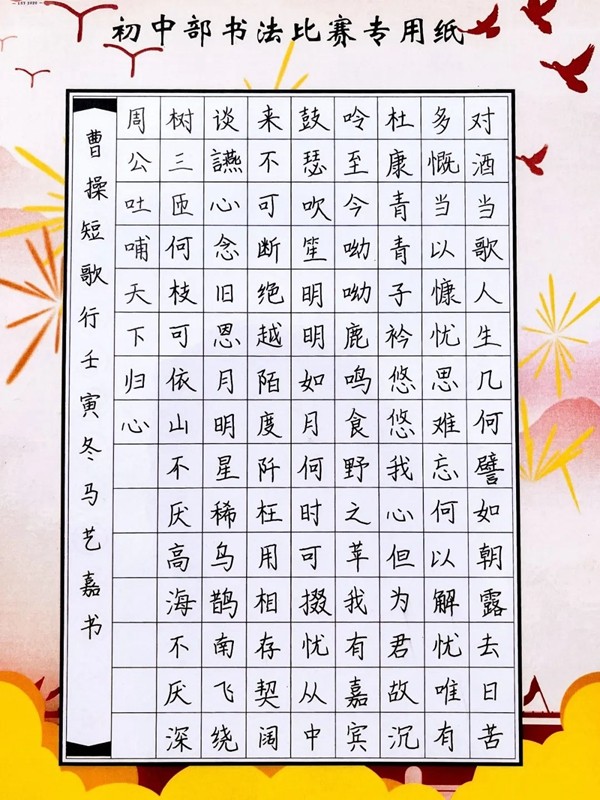 初中部书法比赛专用纸
对酒当歌人生几何譬如朝露去日苦
多慨当以慷忧思难忘何以解忧唯有
杜康青青子衿悠悠我心但为君故沉
吟至今呦呦鹿鸣食野之苹我有嘉宾
鼓瑟吹笙明明如月何时可掇忧从中
来不可断绝越陌度阡枉用相存契阔
谈讌心念旧恩月明星稀乌鹊南飞绕
树三匝何枝可依山不厌高海不厌深
周公吐哺天下归心
曹操短歌行壬寅冬马艺嘉书